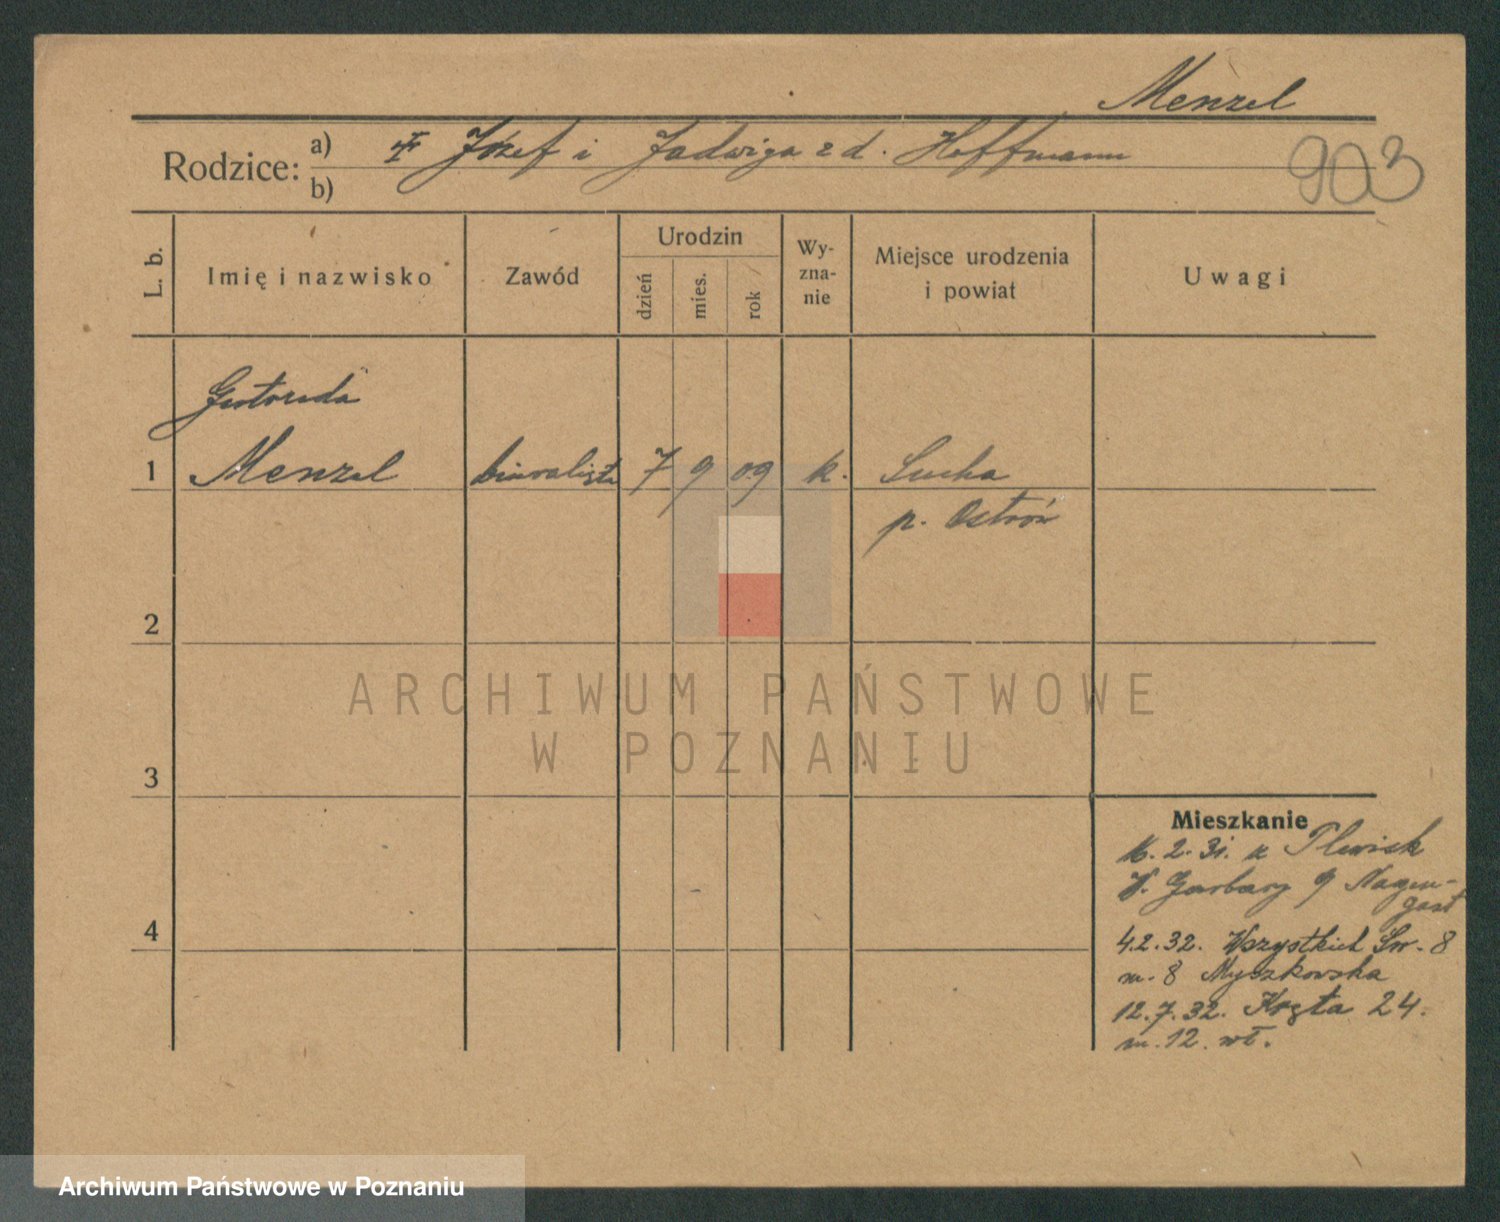 Menzel
Rodzice: a) Józef i Jadwiga z d. Hoffmann
b)
903
L. b.
Imię i nazwisko
Zawód
Urodzin
dzień
mies.
rok
Wy-
zna-
nie
Miejsce urodzenia
i powiat
Uwagi
Gertruda
1 Menzel biuralista 7 9 09 k. Sucha
p. Ostrów
2
3
4
Mieszkanie
16. 2. 31. z Plewisk
W. Garbary 9 Nagen-
gast
4.2.32. Wszystkich Św. 8
m. 8 Myszkowska
12.7.32. Kręta 24.
m. 12. wł.
ARCHIWUM PAŃSTWOWE
W POZNANIU
Archiwum Państwowe w Poznaniu